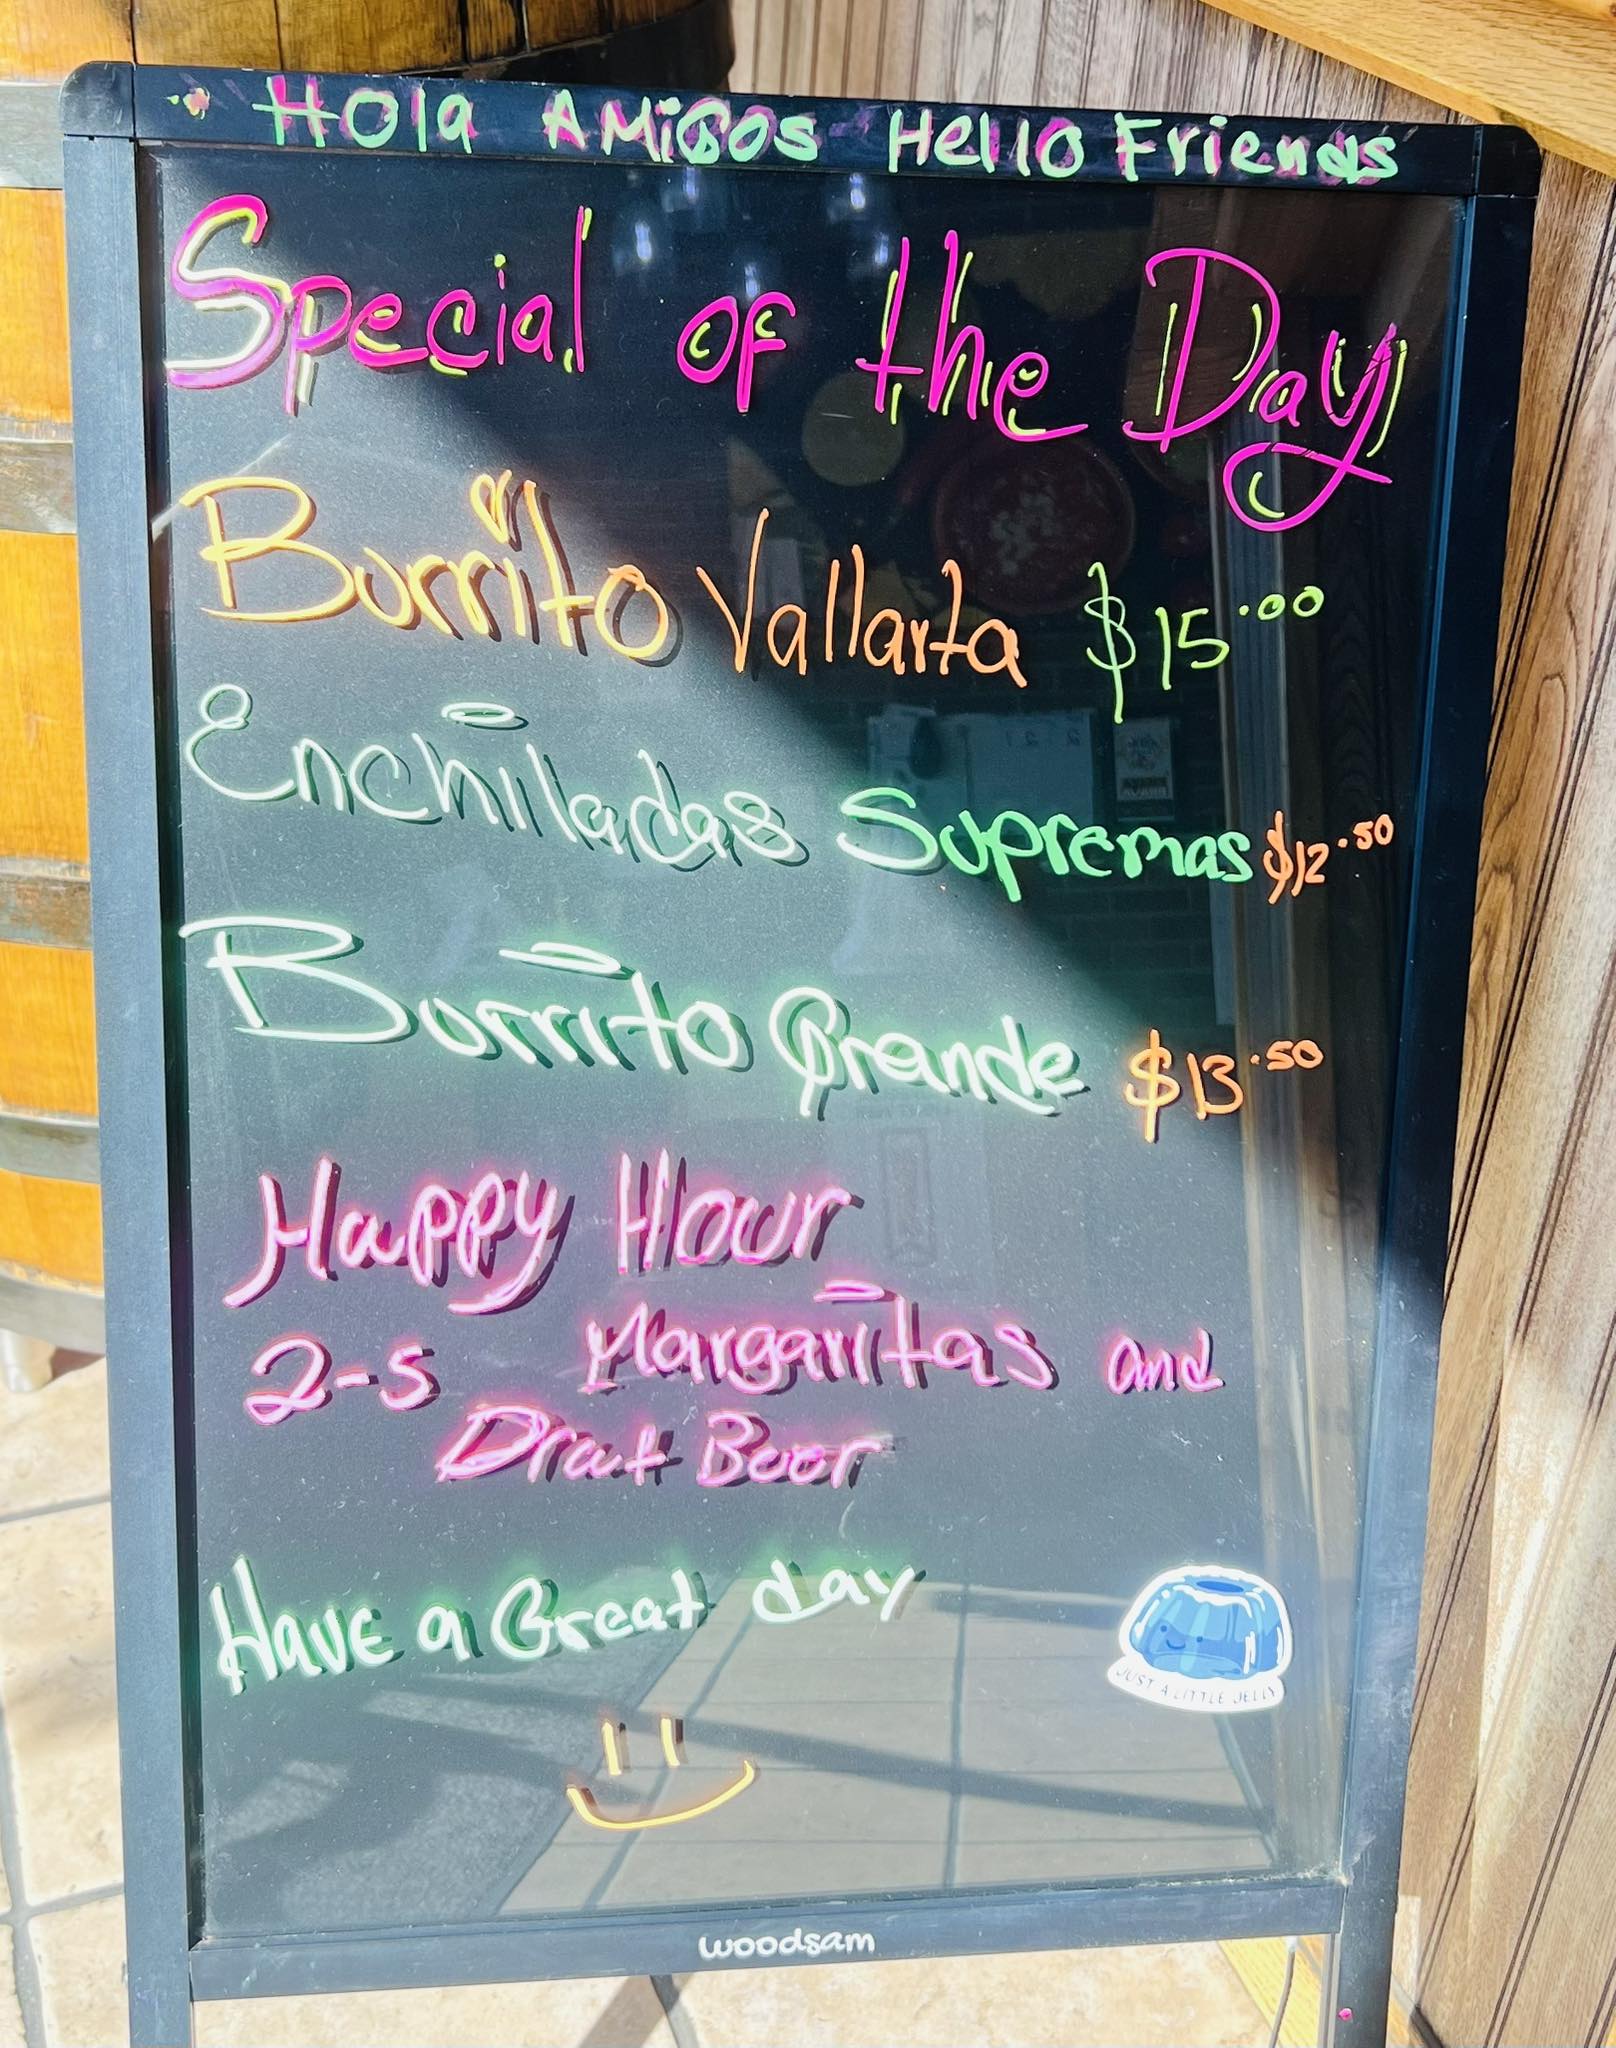 Hola Amigos Hello Friends
Special of the Day
Burrito Vallarta $15.00
Enchiladas Supremas $12.50
Burrito Grande $13.50
Happy Hour
2-5 Margaritas and
Draft Beer
Have a Great day
JUST A LITTLE JELLY
woodsam